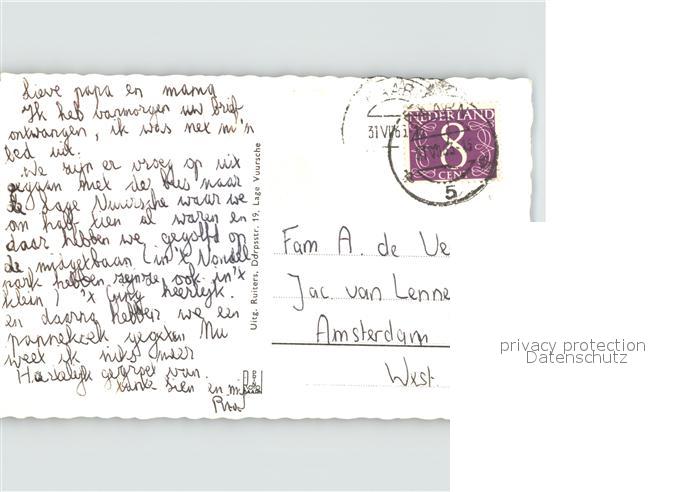 Lieve papa en mama
Ik heb vanmorgen uw brief
ontvangen, ik was net m'n
bed uit.
We zijn er vroeg op uit
gegaan met de bus naar
de Lage Vuursche waar we
om half tien al waren en
daar hebben we gegolfd op
de midgetbaan (in 't Vondel
park hebben ze ook in 't
klein) 't ging heerlijk.
en daarna hebben we een
pannekoek gegeten Nu
weet ik niets meer
Hartelijk gegroet van
tante Sien en
Uitg. Ruiters, Dorpsstr. 19, Lage Vuursche
NEDERLAND
8
CENT
31 VII 6
5
Fam A. de Ve
Jac. van Lenne
Amsterdam
West.
privacy protection
Datenschutz